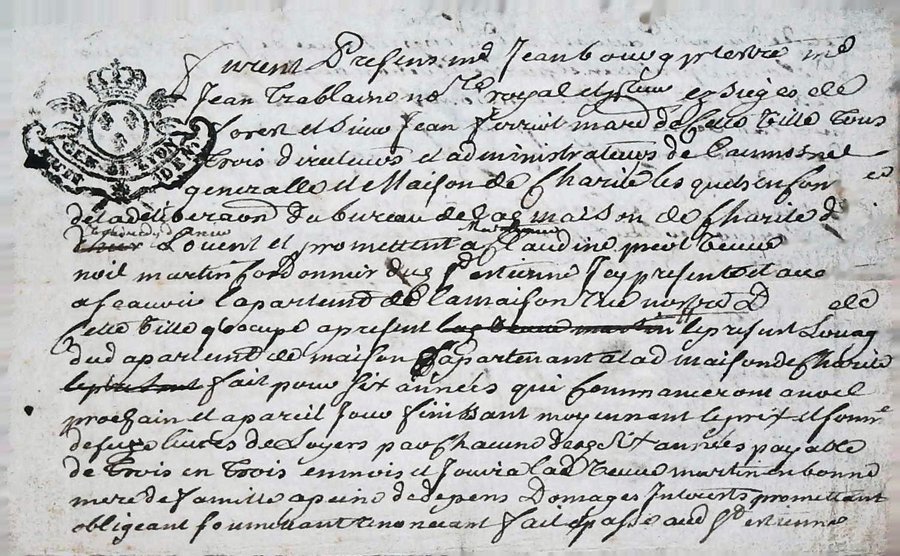 GEN DE LION
Furent Presens me Jean bouvy prestre
Jean Trablaine no.re royal et en sieges de
forest et sieur Jean mard de Cette Ville tous
Trois directeurs et administrateurs de Laumosne
generalle et Maison de Charite les quels en Con
de la deliberaon du bureau de lad maison de Charite
Louent et promettent a Claudine veuve
noil martin Cordonnier dud st estienne Icy presente et acc
a scavoir lapartemt de la maison rue nostre D de
Cette Ville quoccupe a present le present Louag
dud apartemt de maison apartenant a lad maison de Charite
fait pour six années qui Commanceront a noel
prochain et a pareil Jour finissant moyennant le prix et somme
de livres de Loyers par Chacune desd années payable
de Trois en Trois en mois et Jouira lad veuve martin en bonne
mere de famille a peine de depens Domages Interests promettant
obligeant soumettant renoncant fait et passé aud st estienne